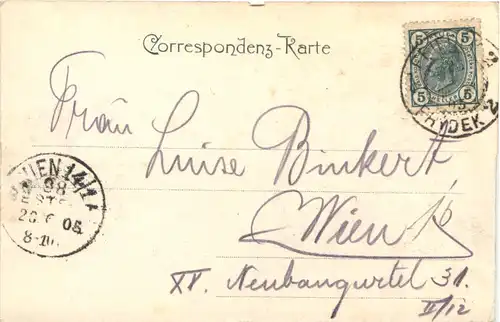 Correspondenz-Karte
5 5
5 5
FRYDEK 2
Frau
Luise Binkert,
Wien
WIEN 14/1
98
BEST
20 6 05
8-
XV. Neubaugürtel 31.
II/12